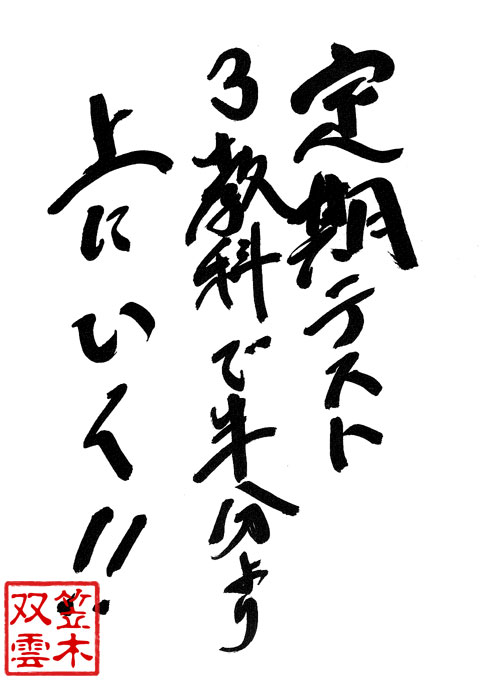 定期テスト
3教科で半分より
上にいく!!
笠木
双雲